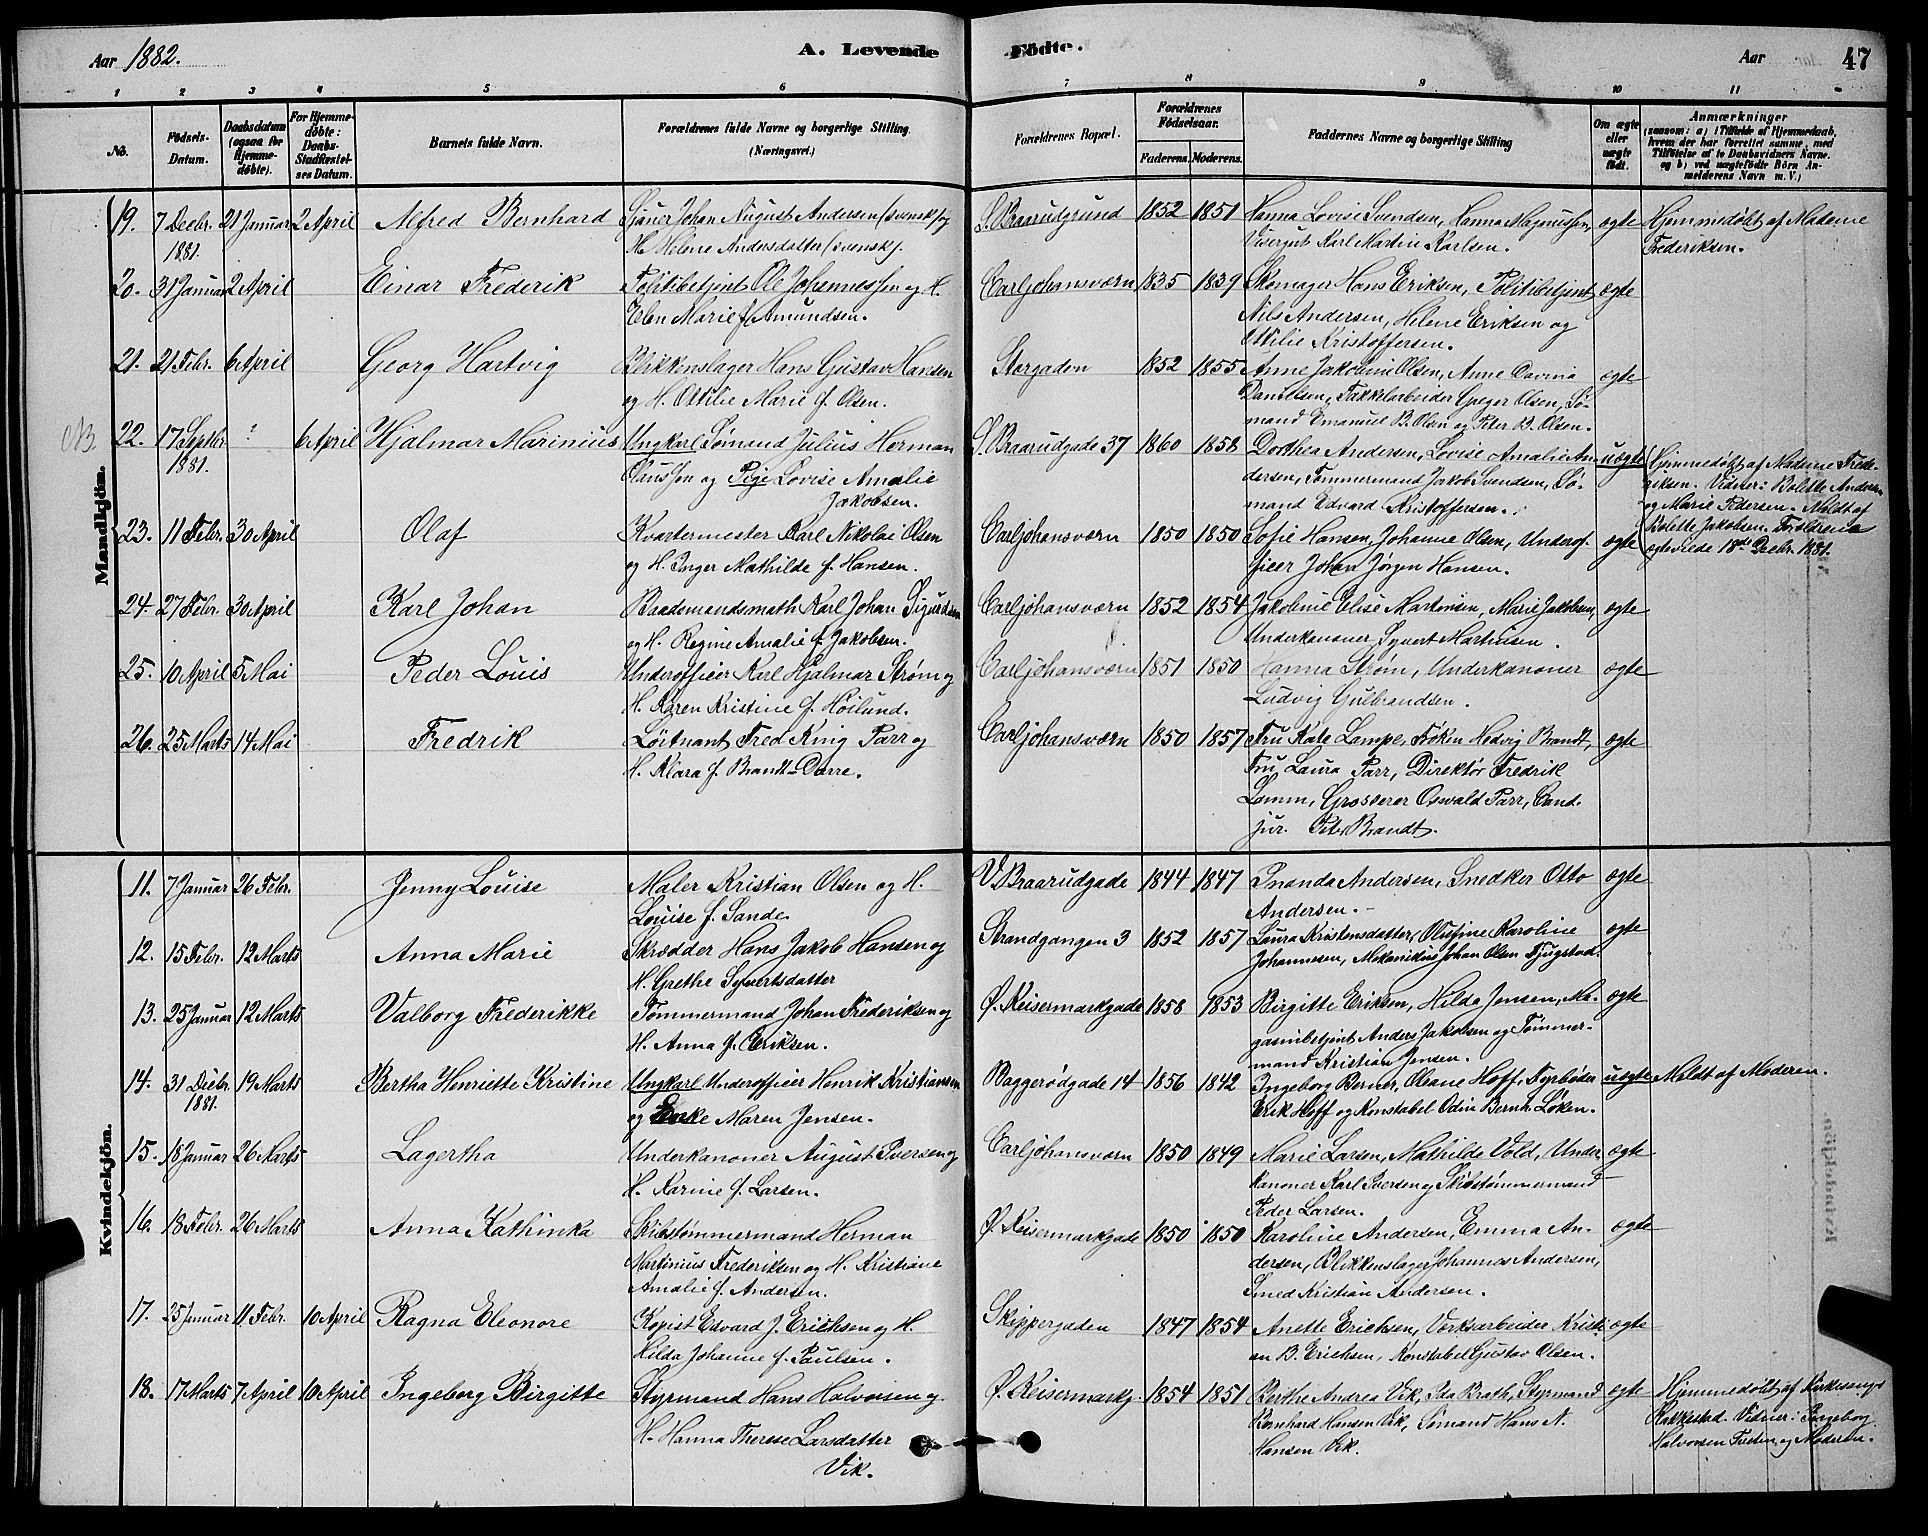 Aar 1882.
A. Levende
Födte.
Aar
47
1 2 3 4 5 6 7 8 9 10 11
No.
Födsels-Datum.
Daabsdatum (ogsaa for Hjemme-döbte).
For Hjemme-döbte: Daabs-Stadfæstel-ses Datum.
Barnets fulde Navn.
Forældrenes fulde Navne og borgerlige Stilling. (Næringsvei.)
Forældrenes Bopæl.
Forældrenes Födselsaar.
Faderens.
Moderens.
Faddernes Navne og borgerlige Stilling
Om ægte eller uægte födt.
Anmærkninger
(saasom: a) i Tilfælde af Hjemmedaab, hvem der har forrettet samme, med Tilföielse af to Daabsvidners Navne. og b) ved uægtefödte Börn An-melderens Navn m. V.)
Mandkjön.
19. 7 Decbr. 21 Januar 2 April Alfred Bernhard Sjauer Johan August Andersen (svensk) og S. Braarudgrund 1852 1851 Hanna Lovise Svendsen, Hanna Magnussen, ægte Hjemmedøbt af Madame
1881. H. Helene Andersdatter (svensk). Visergut Karl Martin Karlsen. Frederiksen.
20. 31 Januar 2 April Einar Frederik Politibetjent Ole Johannessen og H. Carljohansværn 1835 1839 Skomager Hans Eriksen, Politibetjent ægte
Elen Marie f. Amundsen. Nils Andersen, Helene Eriksen og
Ottilie Kristoffersen.
21. 21 Febr. 6 April Georg Hartvig Blikkenslager Hans Gustav Hansen Storgaden 1852 1855 Anne Jakobine Olsen, Anne Davina ægte
og H. Ottilie Marie f. Olsen. Danielsen, Takkelarbeider Greger Olsen, Sø-
mand Emanuel B. Olsen og Peter B. Olsen.
NB. 22. 17 Septbr. ? 6 April Hjalmar Marinius Ungkarl Sømand Julius Herman S. Braarudgade 37 1860 1858 Dorthea Andersen, Lovise Amalie An- uægte Hjemmedøbt af Madame Frede-
1881. Olaussen og Pige Lovise Amalie dersen, Tømmermand Jakob Svendsen, Sø- riksen. Vidner: Bolette Andersen
Jakobsen. mand Edvard Kristoffersen. og Marie Pedersen. Meldt af
23. 11 Febr. 30 April Olaf Kvartermester Karl Nikolai Olsen Carljohansværn 1850 1850 Sofie Hansen, Johanne Olsen, Underof- ægte Bolette Jakobsen. Forældrene
og H. Inger Mathilde f. Hansen. ficer Johan Jørgen Hansen. ægteviede 18de Decbr. 1881.
24. 27 Febr. 30 April Karl Johan Baadsmandsmath Karl Johan Sigurdsen Carljohansværn 1852 1854 Jakobine Elise Martinsen, Marie Jakobsen, ægte
og H. Regine Amalie f. Jakobsen. Underkanoner Syvert Martinsen.
25. 10 April 5 Mai Peder Louis Underofficer Karl Hjalmar Strøm og Carljohansværn 1851 1850 Hanna Strøm, Underkanoner ægte
H. Karen Kristine f. Høilund. Ludvig Gulbrandsen.
26. 25 Marts 14 Mai Fredrik Løitnant Fred King Parr og Carljohansværn 1850 1857 Fru Kate Lampe, Frøken Hedvig Brandt, ægte
H. Klara f. Brandt-Darre. Fru Laura Parr, Direktør Fredrik
Lamm, Grosserer Oswald Parr, Cand.
jur. Peter Brandt.
Kvindekjön.
11. 7 Januar 26 Febr. Jenny Louise Maler Kristian Olsen og H. V. Braarudgade 1844 1847 Andersen, Snedker Otto ægte
Louise f. Sande. Andersen. -
12. 15 Febr. 12 Marts Anna Marie Skrædder Hans Jakob Hansen og Strandgangen 3 1852 1857 Laura Kristensdatter, Olufine Karoline ægte
H. Grethe Syvertsdatter Johannesen, Mekanikus Johan Olsen Fjugstad.
13. 25 Januar 12 Marts Valborg Frederikke Tømmermand Johan Frederiksen og Ø. Keisermarkgade 1858 1853 Birgitte Eriksen, Hilda Jensen, Ma- ægte
H. Anna f. Eriksen. gasinbetjent Anders Jakobsen og Tømmer-
mand Kristian Jensen.
14. 31 Decbr. 19 Marts Bertha Henriette Kristine Ungkarl Underofficer Henrik Kristiansen Baggerødgade 14 1856 1842 Ingeborg Berner, Oleane Hoff, Fyrbøder uægte Meldt af Moderen.
1881. og Enke Maren Jensen. Erik Hoff og Konstabel Odin Bernh. Løken.
15. 18 Januar 26 Marts Lagertha Underkanoner August Iversen og Carljohansværn 1850 1849 Marie Larsen, Mathilde Vold, Under- ægte
H. Karine f. Larsen. kanoner Karl Iversen og Skibstømmermand
Peder Larsen.
16. 18 Febr. 26 Marts Anna Kathinka Skibstømmermand Herman Ø. Keisermarkgade 1850 1850 Karoline Andersen, Emma An- ægte
Martinius Frederiksen og H. Kristiane dersen, Blikkenslager Johannes Andersen,
Amalie f. Andersen. Smed Kristian Andersen.
17. 25 Januar 11 Febr. 10 April Ragna Eleonore Kopist Edvard J. Erichsen og H. Skippergaden 1847 1854 Anette Erichsen, Verksarbeider Kristi- ægte
Hilda Johanne f. Paulsen. an B. Erichsen, Konstabel Gustav Olsen.
18. 17 Marts 7 April 10 April Ingeborg Birgitte Styrmand Hans Halvorsen og Ø. Keisermarkg. 1854 1851 Berthe Andrea Vik, Ida Brath, Styrmand ægte Hjemmedøbt af Kirkesanger
H. Hanna Therese Larsdatter Bernhard Hansen Vik, Sømand Hans A. Rakkestad. Vidner: Ingeborg
Vik. Hansen Vik. Halvorsen og Moderen.